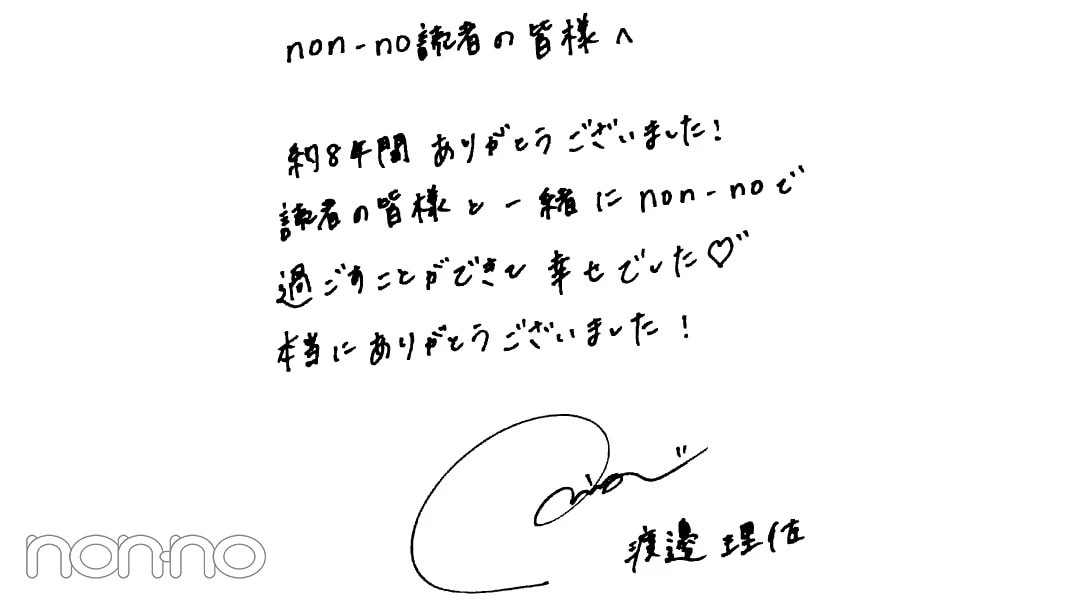 non-no読者の皆様へ
約8年間 ありがとうございました!
読者の皆様と一緒にnon-noで
過ごすことができて 幸せでした♡
本当にありがとうございました!
渡邊理佐
non-no